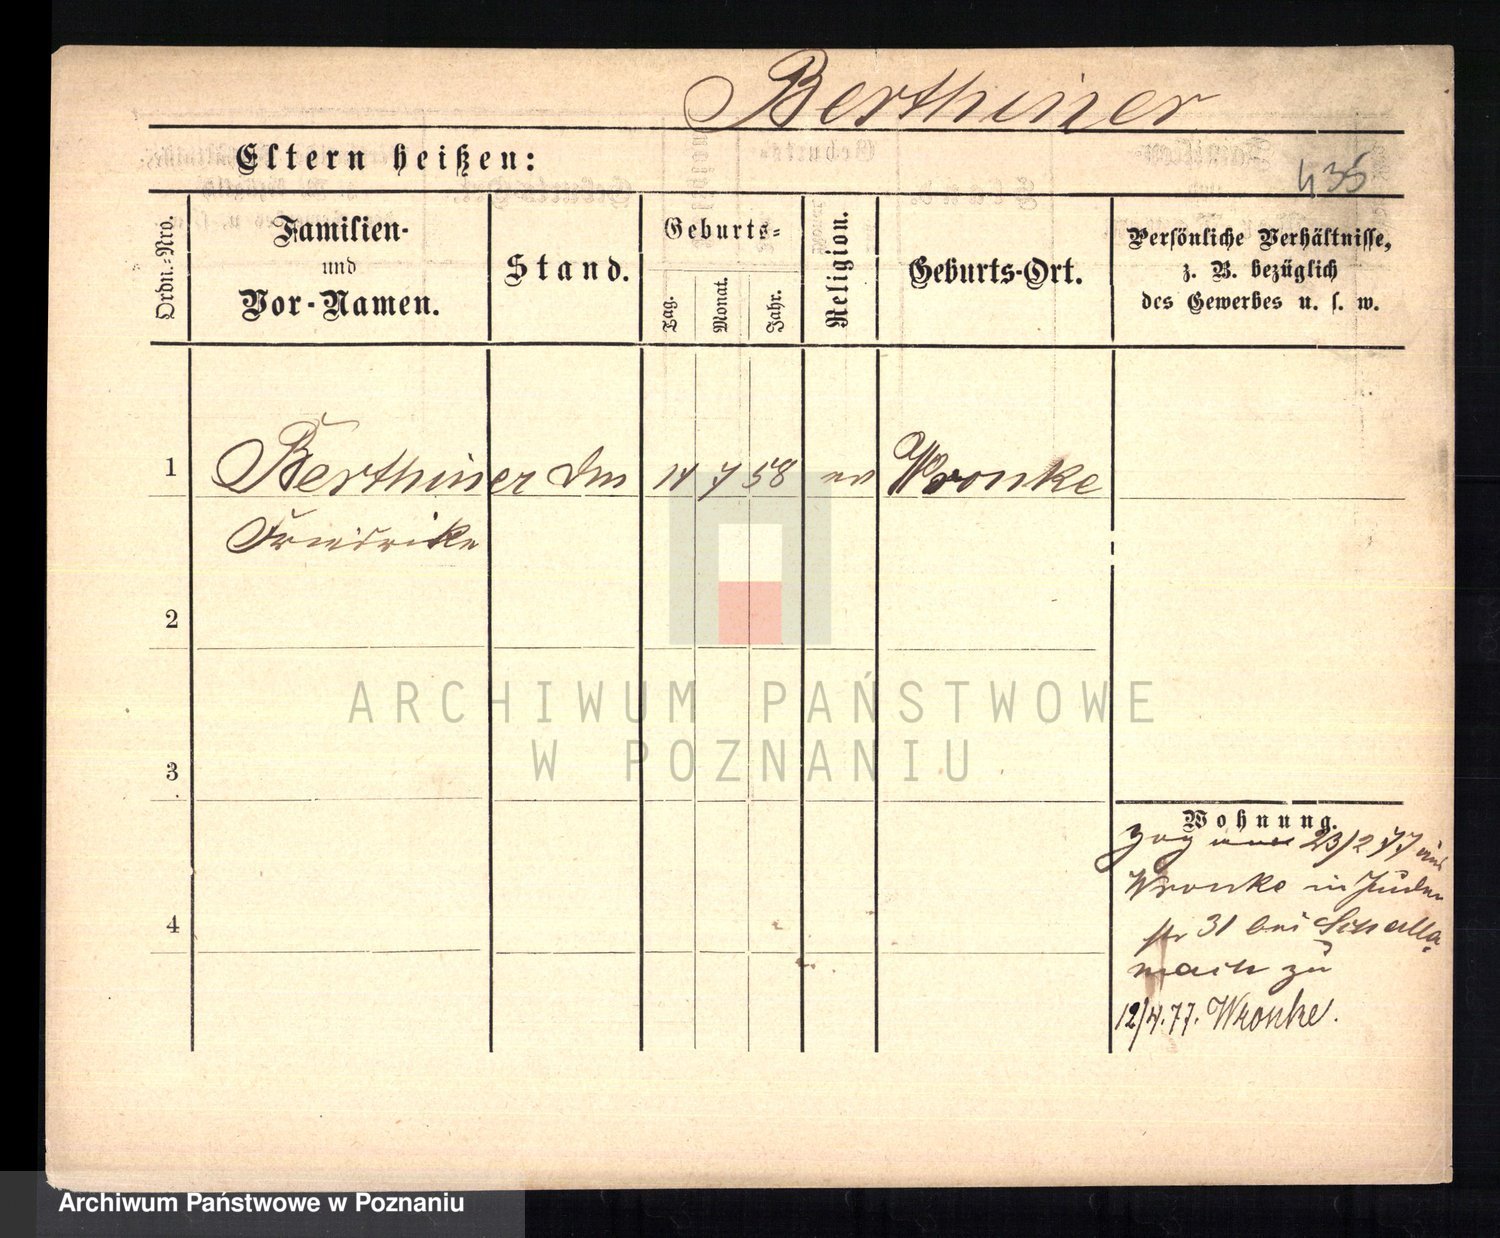 Berthiner
Eltern heißen:
435
Ordn.-Nro.
Familien-
und
Vor-Namen.
Stand.
Geburts-
Tag.
Monat.
Jahr.
Religion.
Geburts-Ort.
Persönliche Verhältnisse,
z. B. bezüglich
des Gewerbes u. s. w.
1 Berthiner 14 7 58 ev Wronke
Friedrike
2
3
4
Wohnung.
zog 23/2 77 aus
Wronke in Juden
str 31 bei
zu
12/4.77. Wronke.
ARCHIWUM PAŃSTWOWE
W POZNANIU
Archiwum Państwowe w Poznaniu